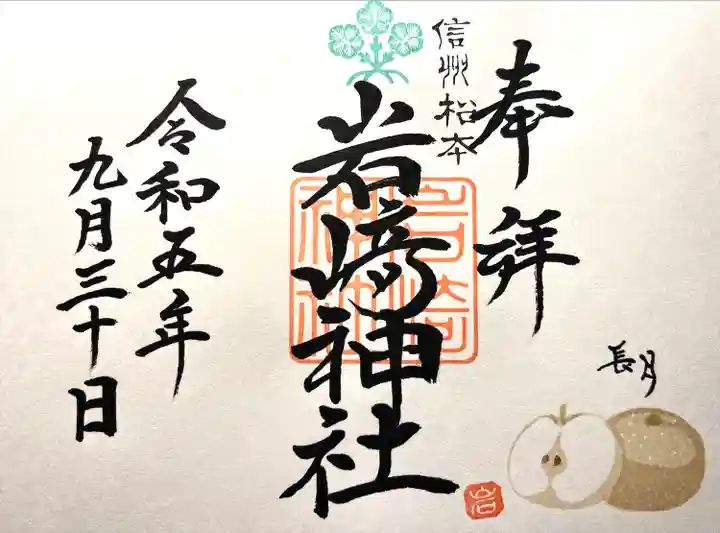 奉拝
信州松本
岩﨑神社
岩崎神社
令和五年
九月三十日
長月
岩